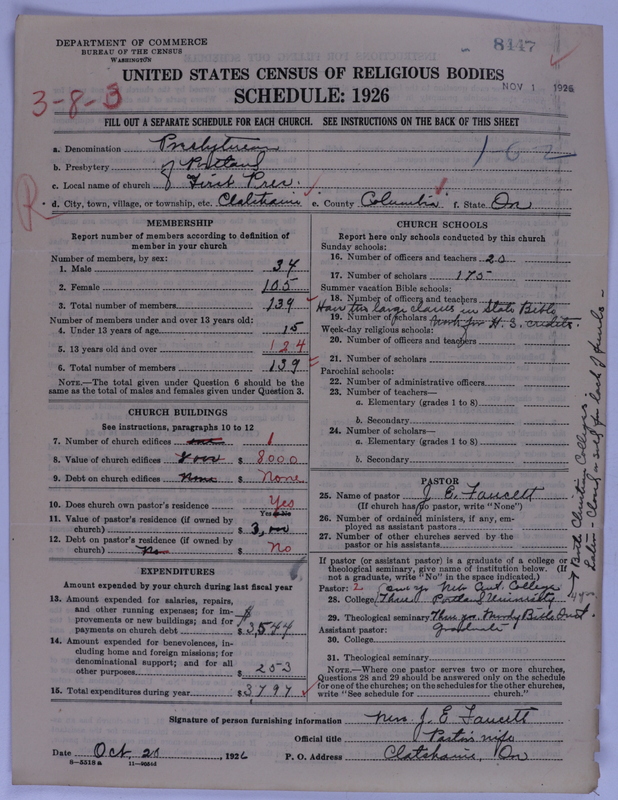 DEPARTMENT OF COMMERCE
BUREAU OF THE CENSUS
WASHINGTON
8447
UNITED STATES CENSUS OF RELIGIOUS BODIES
NOV 1 1926
SCHEDULE: 1926
3-8-3
FILL OUT A SEPARATE SCHEDULE FOR EACH CHURCH. SEE INSTRUCTIONS ON THE BACK OF THIS SHEET
a. Denomination Presbyterian
b. Presbytery of Portland
102
c. Local name of church First Pres.
R
d. City, town, village, or township, etc. Clatskanie e. County Columbia f. State Or
MEMBERSHIP
Report number of members according to definition of member in your church
Number of members, by sex:
1. Male 34
2. Female 105
3. Total number of members 139
Number of members under and over 13 years old:
4. Under 13 years of age 15
5. 13 years old and over 124
6. Total number of members 139
NOTE.—The total given under Question 6 should be the same as the total of males and females given under Question 3.
CHURCH BUILDINGS
See instructions, paragraphs 10 to 12
7. Number of church edifices 1
8. Value of church edifices 8000 $ 8000
9. Debt on church edifices None $ None
10. Does church own pastor's residence Yes
Yes or No
11. Value of pastor's residence (if owned by church) $ 3,000
12. Debt on pastor's residence (if owned by church) No $ No
EXPENDITURES
Amount expended by your church during last fiscal year
13. Amount expended for salaries, repairs, and other running expenses; for improvements or new buildings; and for payments on church debt $ 3,544
14. Amount expended for benevolences, including home and foreign missions; for denominational support; and for all other purposes 253
15. Total expenditures during year $ 3,797
CHURCH SCHOOLS
Report here only schools conducted by this church
Sunday schools:
16. Number of officers and teachers 20
17. Number of scholars 175
Summer vacation Bible schools:
18. Number of officers and teachers
Have two large classes in State Bible
19. Number of scholars work for H. S. credits.
Week-day religious schools:
20. Number of officers and teachers
21. Number of scholars
Parochial schools:
22. Number of administrative officers
23. Number of teachers—
a. Elementary (grades 1 to 8)
b. Secondary
24. Number of scholars—
a. Elementary (grades 1 to 8)
b. Secondary
PASTOR
25. Name of pastor J. E. Faucett
(If church has no pastor, write "None")
26. Number of ordained ministers, if any, employed as assistant pastors
27. Number of other churches served by the pastor or his assistants
If pastor (or assistant pastor) is a graduate of a college or theological seminary, give name of institution below. (If not a graduate, write "No" in the space indicated.)
Pastor: 2
28. College Three Portland University
29. Theological seminary Three yrs. Moody Bible Inst.
Graduate
Assistant pastor:
30. College
31. Theological seminary
NOTE.—Where one pastor serves two or more churches, Questions 28 and 29 should be answered only on the schedule for one of the churches; on the schedules for the other churches, write "See schedule for church."
Both Christian Colleges
for lack of funds
Signature of person furnishing information Mrs. J. E. Faucett
Official title Pastor's wife
Date Oct. 20, 1926 P. O. Address Clatskanie, Or
8-5518 a